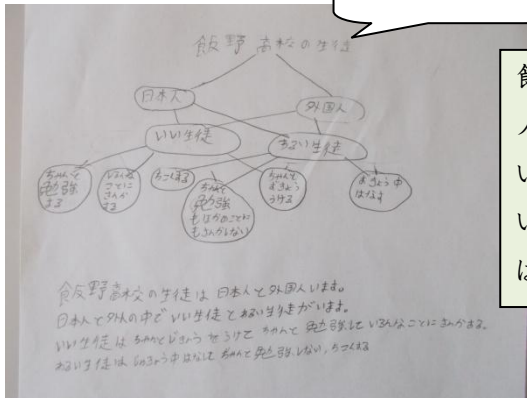 飯野高校の生徒
日本人
外国人
いい生徒
わるい生徒
ちゃんと
勉強
する
いろんな
ことに
さんか
する
ちこくする
ちゃんと
勉強
もほかのことに
もさんかしない
ちゃんと
じゅぎょう
うける
じゅぎょう中
はなす
飯野高校の生徒は日本人と外国人います。
日本人と外人の中でいい生徒とわるい生徒がいます。
いい生徒はちゃんとじゅぎょうをうけてちゃんと勉強していろんなことにさんかする。
わるい生徒はじゅぎょう中はなしちゃんと勉強しない、ちこくする